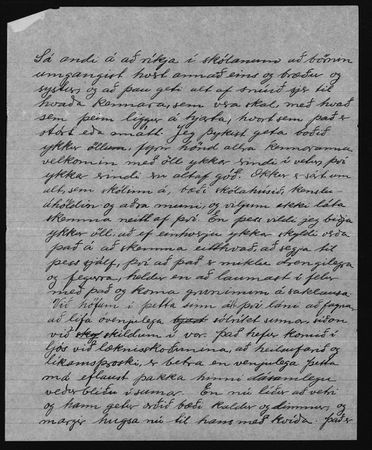 Sá andi á að ríkja í skólanum að börnin
umgangist hvort annað eins og bræður og
systur, og að þau geti alt af snúið sjer til
hvaða kennara, sem vera skal, með hvað
sem þeim liggur á hjarta, hvort sem það er
stórt eða smátt. Jeg þykist geta boðið
ykkur öllum, fyrir hönd allra kennaranna
velkomin með öll ykkar erindi í vetur, því
ykkar erindi eru altaf góð. Okkur er sárt um
alt, sem skólinn á, bæði skólahúsið, kenslu-
áhöldin og aðra muni, og viljum ekki láta
skemma neitt af því. En þess vildi jeg biðja
ykkur öll, að ef einhverju ykkar skyldi verða
það á að skemma eitthvað, að segja til
þess sjálf, því að það er miklu drengilegra
og fegurra, heldur en að laumast í felur
með það og koma gruninum á saklausa.
Við höfum í þetta sinn að því láni að fagna,
að lifa óvenjulega sólríkt sumar, síðan
við skildum í vor. Það hefur komið í
ljós við læknisskoðunina, að heilsufarið og
líkamsþroski, er betra en venjulega. Þetta
má eflaust þakka hinni dásamlegu
veðurblíðu í sumar. En nú líður að vetri
og hann getur orðið bæði kaldur og dimmur, og
margir hugsa nú til hans með kvíða. Það er